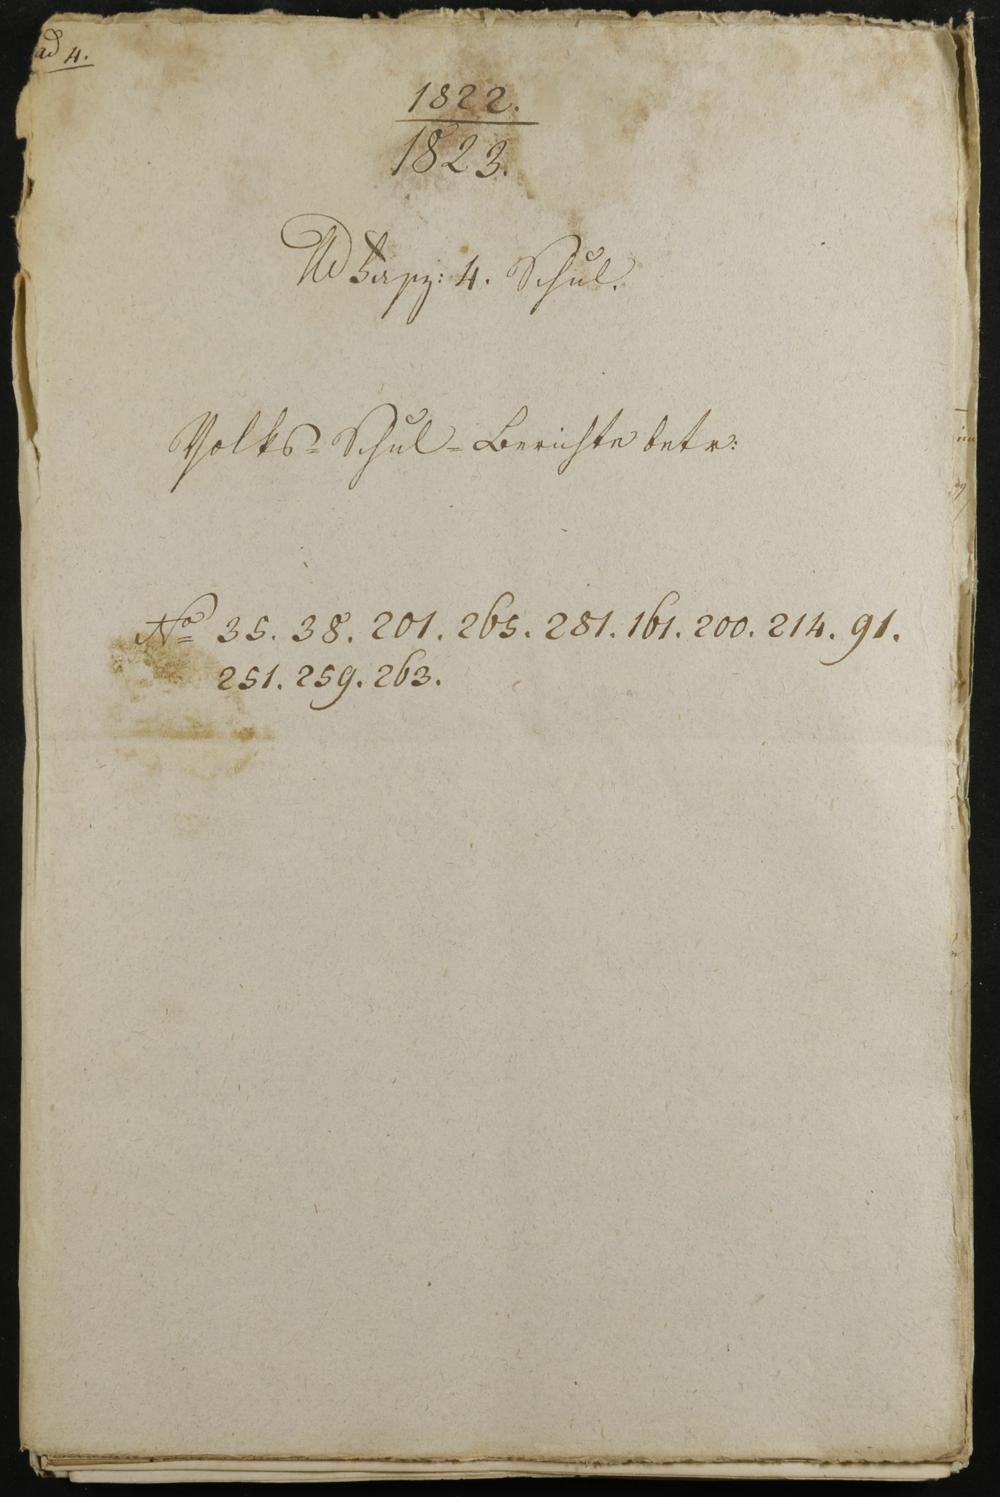 ad 4.
1822.
1823.
Ad 4. Schul.
Volks- Schul- Berichte betr:
No 35. 38. 201. 265. 281. 161. 200. 214. 91.
251. 259. 263.